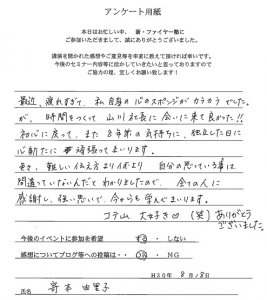 アンケート用紙
本日はお忙しい中、 新・ファイヤー塾に
ご参加いただきまして、誠にありがとうございました。
講演を聞かれた感想やご意見等を率直に教えて頂ければ幸いです。
今後のセミナー内容等に活かしていきたいと思っておりますので
ご協力の程、宜しくお願い致します！
最近、疲れすぎて、私自身の心のスポンジがカラカラでした。
が、時間をつくって 山川社長に会いに来て良かった!!
初心に戻って、また8年前の気持ちに、独立した日に
心新たに 頑張ってまいります。
もう、難しい伝え方よりよがより 自分の思っている事は
間違っていないんだてわかりましたので、全ての人に
感謝し、強い思いで、今からも学んでまいります。
コラム 大好き♡(笑) ありがとう
ございました。
今後のイベントに参加を希望 する ・ しない
感想についてブログ等への投稿は・・ OK ・ NG
H30年 8月18日
由里子